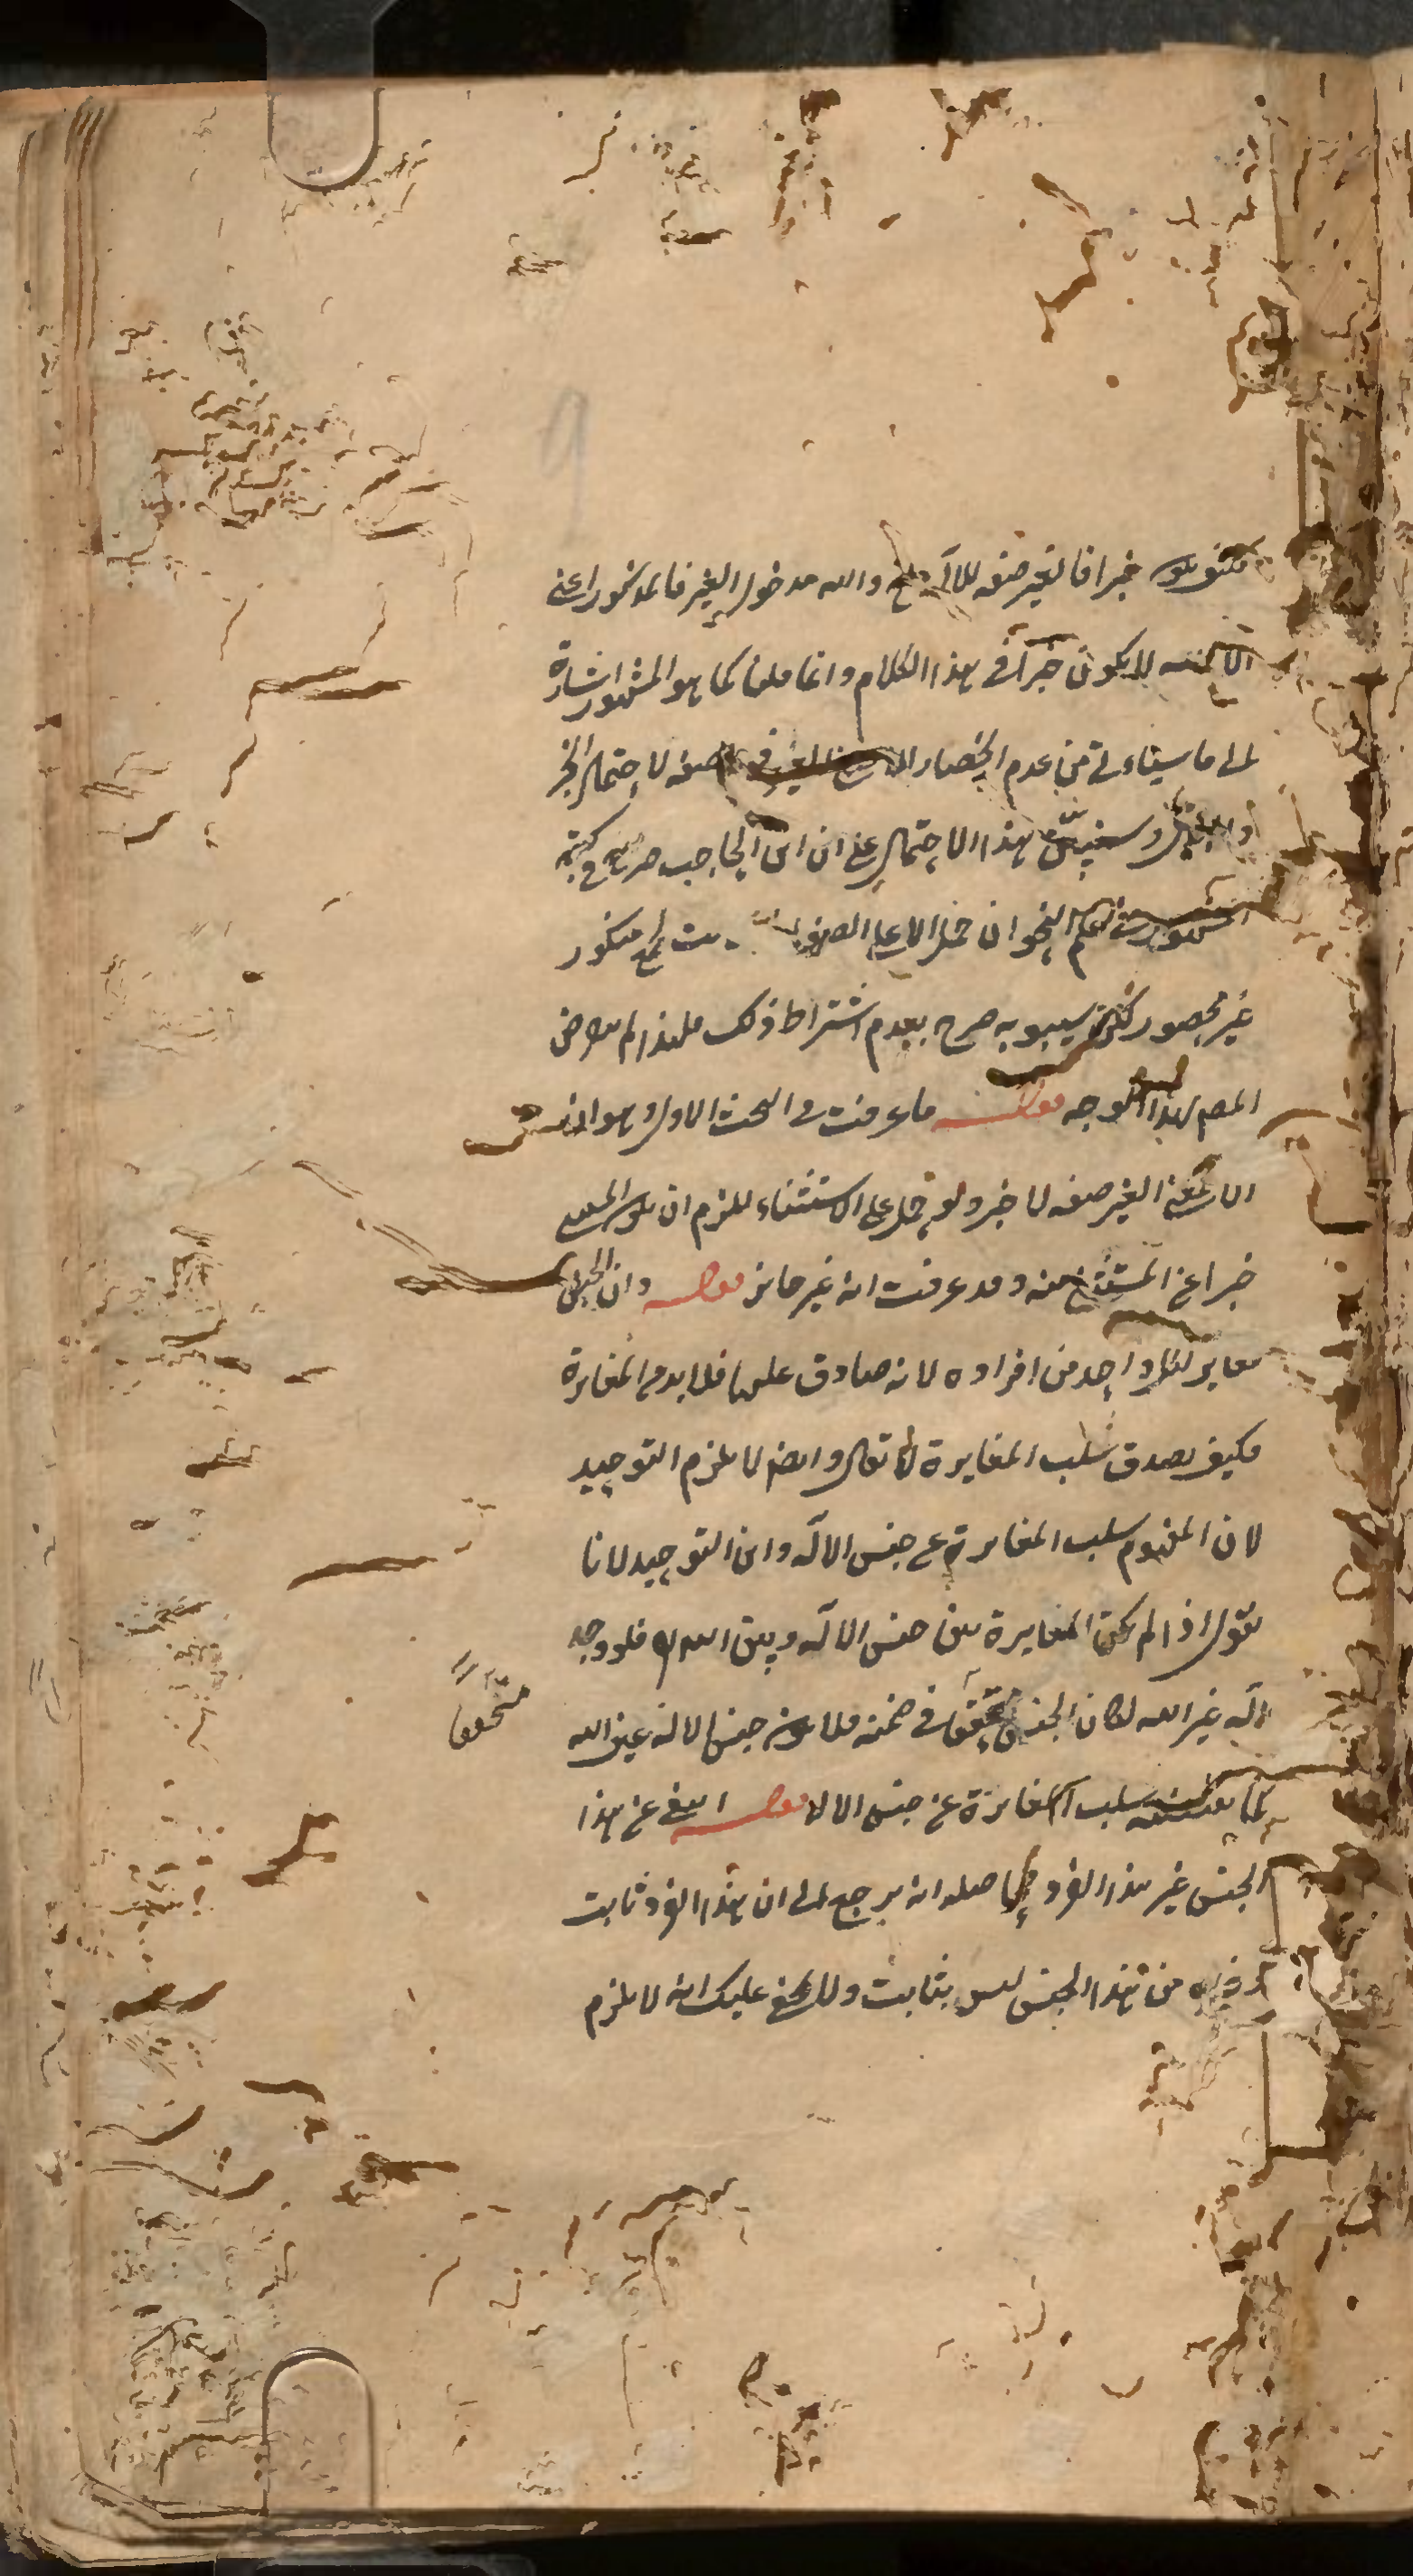 خبرا فالغير صفه للاله والله مدخول الغير فالمذكور اعنى
الا الله لا يكون خبرا فى هذا الكلام وانما قلنا كما هو المشهور اشارة
الى ما سيتاءتى من عدم انحصار الا صفه لاحتمال الخبر
وسنبين هذا الاحتمال على ان ابن الحاجب صرح فى كتبه
علم النحو ان حمل الا على الصفه منكور
غير محصور لكن سيبويه صرح بعدم اشتراط ذلك فلهذا لم يتعرض
المص لهذا الوجه قوله ما عرفت فى البحث الاول وهو ان
الا بمعنى الغير صفه لا خبر ولو حمل على الاستثناء يلزم ان يكون المستثنى
خبرا عن المستثنى منه وقد عرفت انه غير جائز قوله وان الجنس
مغاير لكل واحد من افراده لانه صادق عليها فلا بد من المغايرة
فكيف يصدق سلب المغايرة لا يقال وايضا لا يلزم التوحيد
لان المفهوم سلب المغايرة عن جنس الاله واين التوحيد لانا
نقول اذا لم يكن المغايرة بين جنس الاله وبين الله فلو وجد
اله غير الله لكان الجنس متحققا فى ضمنه فلا يكون جنس الاله عين الله
متحققا
سلب المغايرة عن جنس الاله قوله انتفى عن هذا
الجنس غير هذا الفرد حاصله انه يرجع الى ان هذا الفرد ثابت
وغيره من هذا الجنس ليس بثابت ولا يخفى عليك انه لا يلزم
9